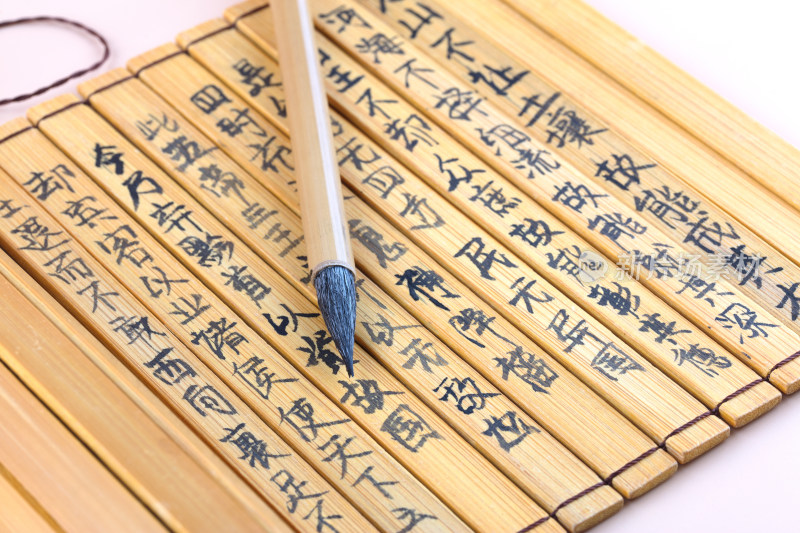 山不让土壤故能成其大
河海不择细流故能其深
王不却众庶故能其德
是以无四方民无异国
四时充鬼神降福
此五帝三王以无敌也
今乃弃黔首以资敌国
却宾客以业诸侯使天下之
士退而不敢西向裹足不